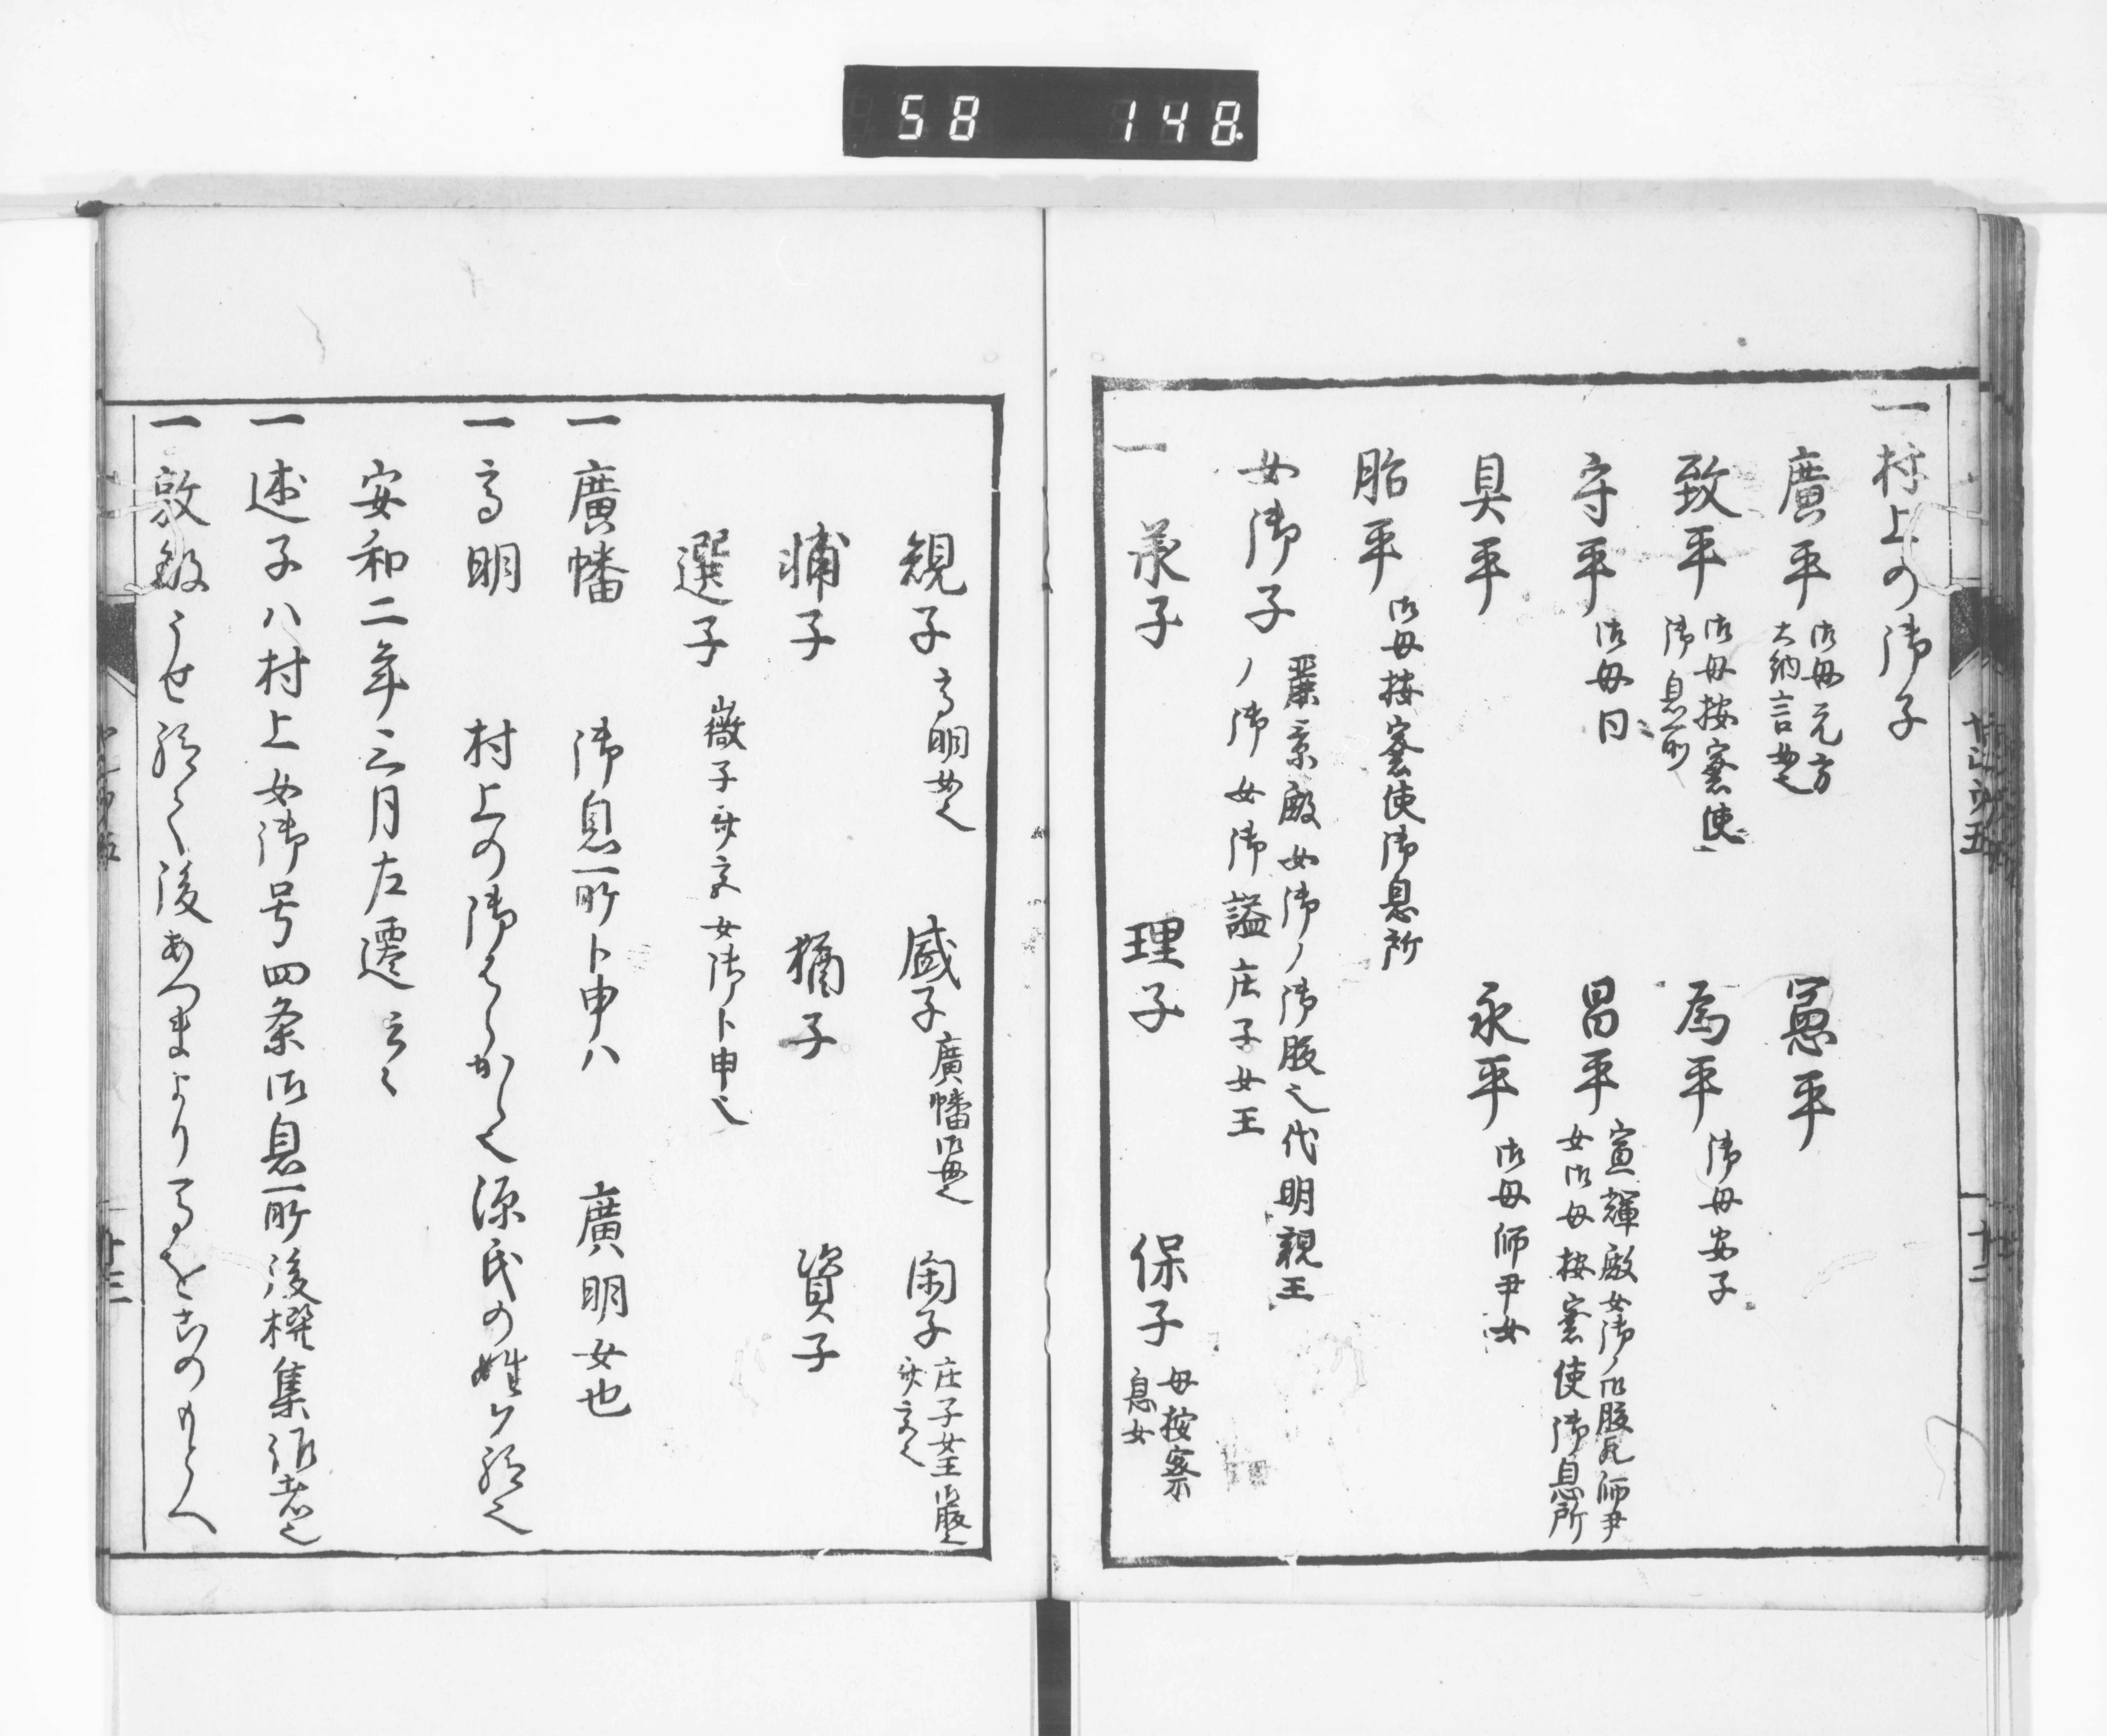 58 148
一村上の御子
廣平 御母元方大納言女也 憲平
致平 御母按察使御息所 為平 御母安子
守平 御母同 昌平 宣輝殿女御ノ御腹 師尹女御母按察使御息所
具平 永平 御母師尹女
脂平 御母按察使御息所
麗景殿女御ノ御腹也代明親王
女御子ノ御女御謚庄子女王
一 承子 理子 保子 母按察息女
規子 高明女也 盛子 廣幡御母也 閑子 庄子女王御腹也
輔子 資子
選子 徽子 女御ト申也
一廣幡 御息所ト申ハ 廣明女也
一高明 村上の御はらから也源氏の姓ヲ給也
安和二年三月左遷云々
一述子ハ村上女御号四条御息所後撰集作者也
一敦敏うせ給て後あつまより馬をこのもとへ
十三